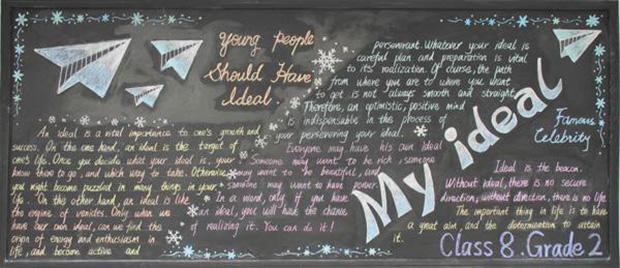 Young People
Should Have
Ideal.
An ideal is a vital importance to one's growth and
success. On the one hand, an ideal is the target of
one's life. Once you decide what your ideal is, your
know there to go, and which way to take. Otherwise
you might become puzzled in many things in your
life. On the other hand, an ideal is like
the engine of venicles. Only when we
have our own ideal, can we find the
origin of energy and enthusiasm in
life, and become active and
perseverant. Whatever your ideal is
careful plan and preparation is vital
to its realization. Of course, the path
from where you are to where you want
to get is not always smooth and straight.
Therefore, an optimistic, positive mind
is indispensable in the process of
your persevering your ideal.
Everyone may have his own ideal
Someone may want to be rich, someone
may want to be beautiful, and
someone may want to have power.
In a word, only if you have
an ideal, you will have the chance
of realizing it. You can do it!
My ideal
Famous
Celebrity
Ideal is the beacon.
Without ideal, there is no secure
direction, without direction, there is no life
The important thing in life is to have
a great aim, and the determination to attain
it.
Class 8. Grade 2